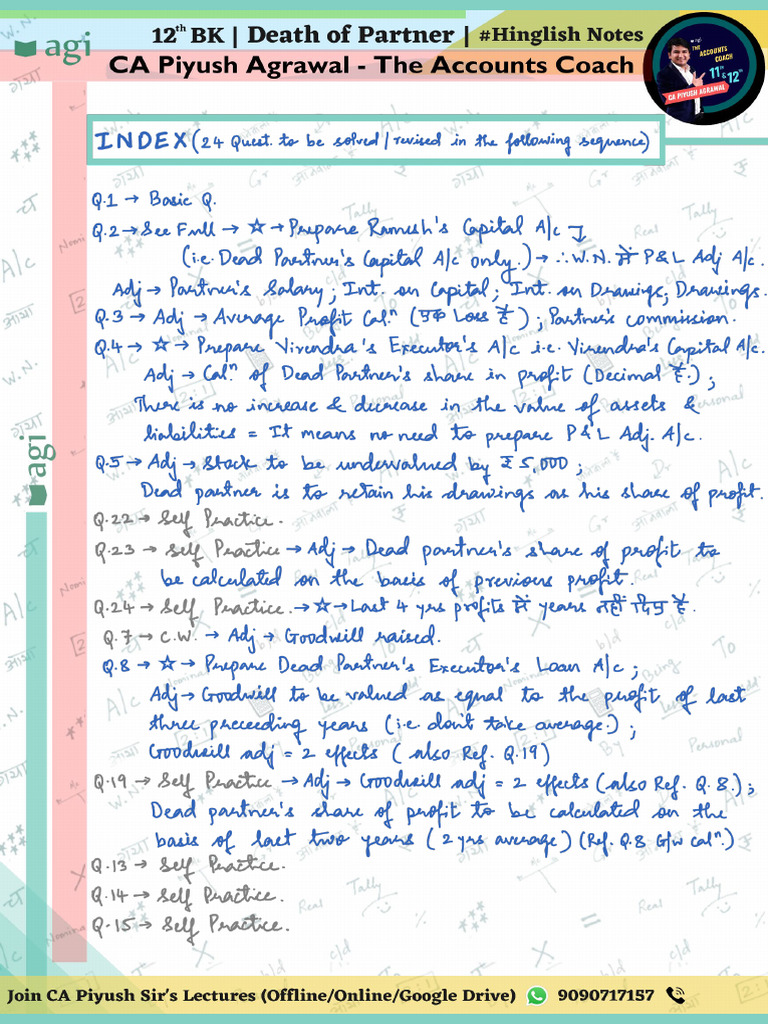 agi
12th BK | Death of Partner | #Hinglish Notes
CA Piyush Agrawal - The Accounts Coach
THE ACCOUNTS COACH
11th & 12th
CA PIYUSH AGRAWAL
INDEX (24 Quest. to be solved / revised in the following sequence)
Q.1 → Basic Q.
Q.2 → See Full → ☆ → Prepare Ramesh's Capital A/c ↴
(i.e. Dead Partner's Capital A/c only.) → ∴ W.N. में P&L Adj A/c.
Adj → Partner's Salary; Int. on Capital; Int. on Drawings; Drawings.
Q.3 → Adj → Average Profit Calⁿ (एक Loss है); Partner's commission.
Q.4 → ☆ → Prepare Virendra's Executor's A/c i.e. Virendra's Capital A/c.
Adj → Calⁿ. of Dead Partner's share in profit (Decimal है.);
There is no increase & decrease in the value of assets &
liabilities = It means no need to prepare P&L Adj. A/c.
Q.5 → Adj → Stock to be undervalued by ₹5,000;
Dead partner is to retain his drawings as his share of profit.
Q.22 → Self Practice.
Q.23 → Self Practice → Adj → Dead partner's share of profit to
be calculated on the basis of previous profit.
Q.24 → Self Practice. → ☆ → Last 4 yrs profits के years नहीं दिए है.
Q.7 → C.W. → Adj → Goodwill raised.
Q.8 → ☆ → Prepare Dead Partner's Executor's Loan A/c;
Adj → Goodwill to be valued as equal to the profit of last
three preceeding years (i.e. don't take average.);
Goodwill adj = 2 effects (also Ref. Q.19)
Q.19 → Self Practice → Adj → Goodwill adj = 2 effects (also Ref. Q.8.);
Dead partner's share of profit to be calculated on the
basis of last two years (2 yrs average) (Ref. Q.8 G/w calⁿ.)
Q.13 → Self Practice.
Q.14 → Self Practice.
Q.15 → Self Practice.
agi
Join CA Piyush Sir's Lectures (Offline/Online/Google Drive) 9090717157